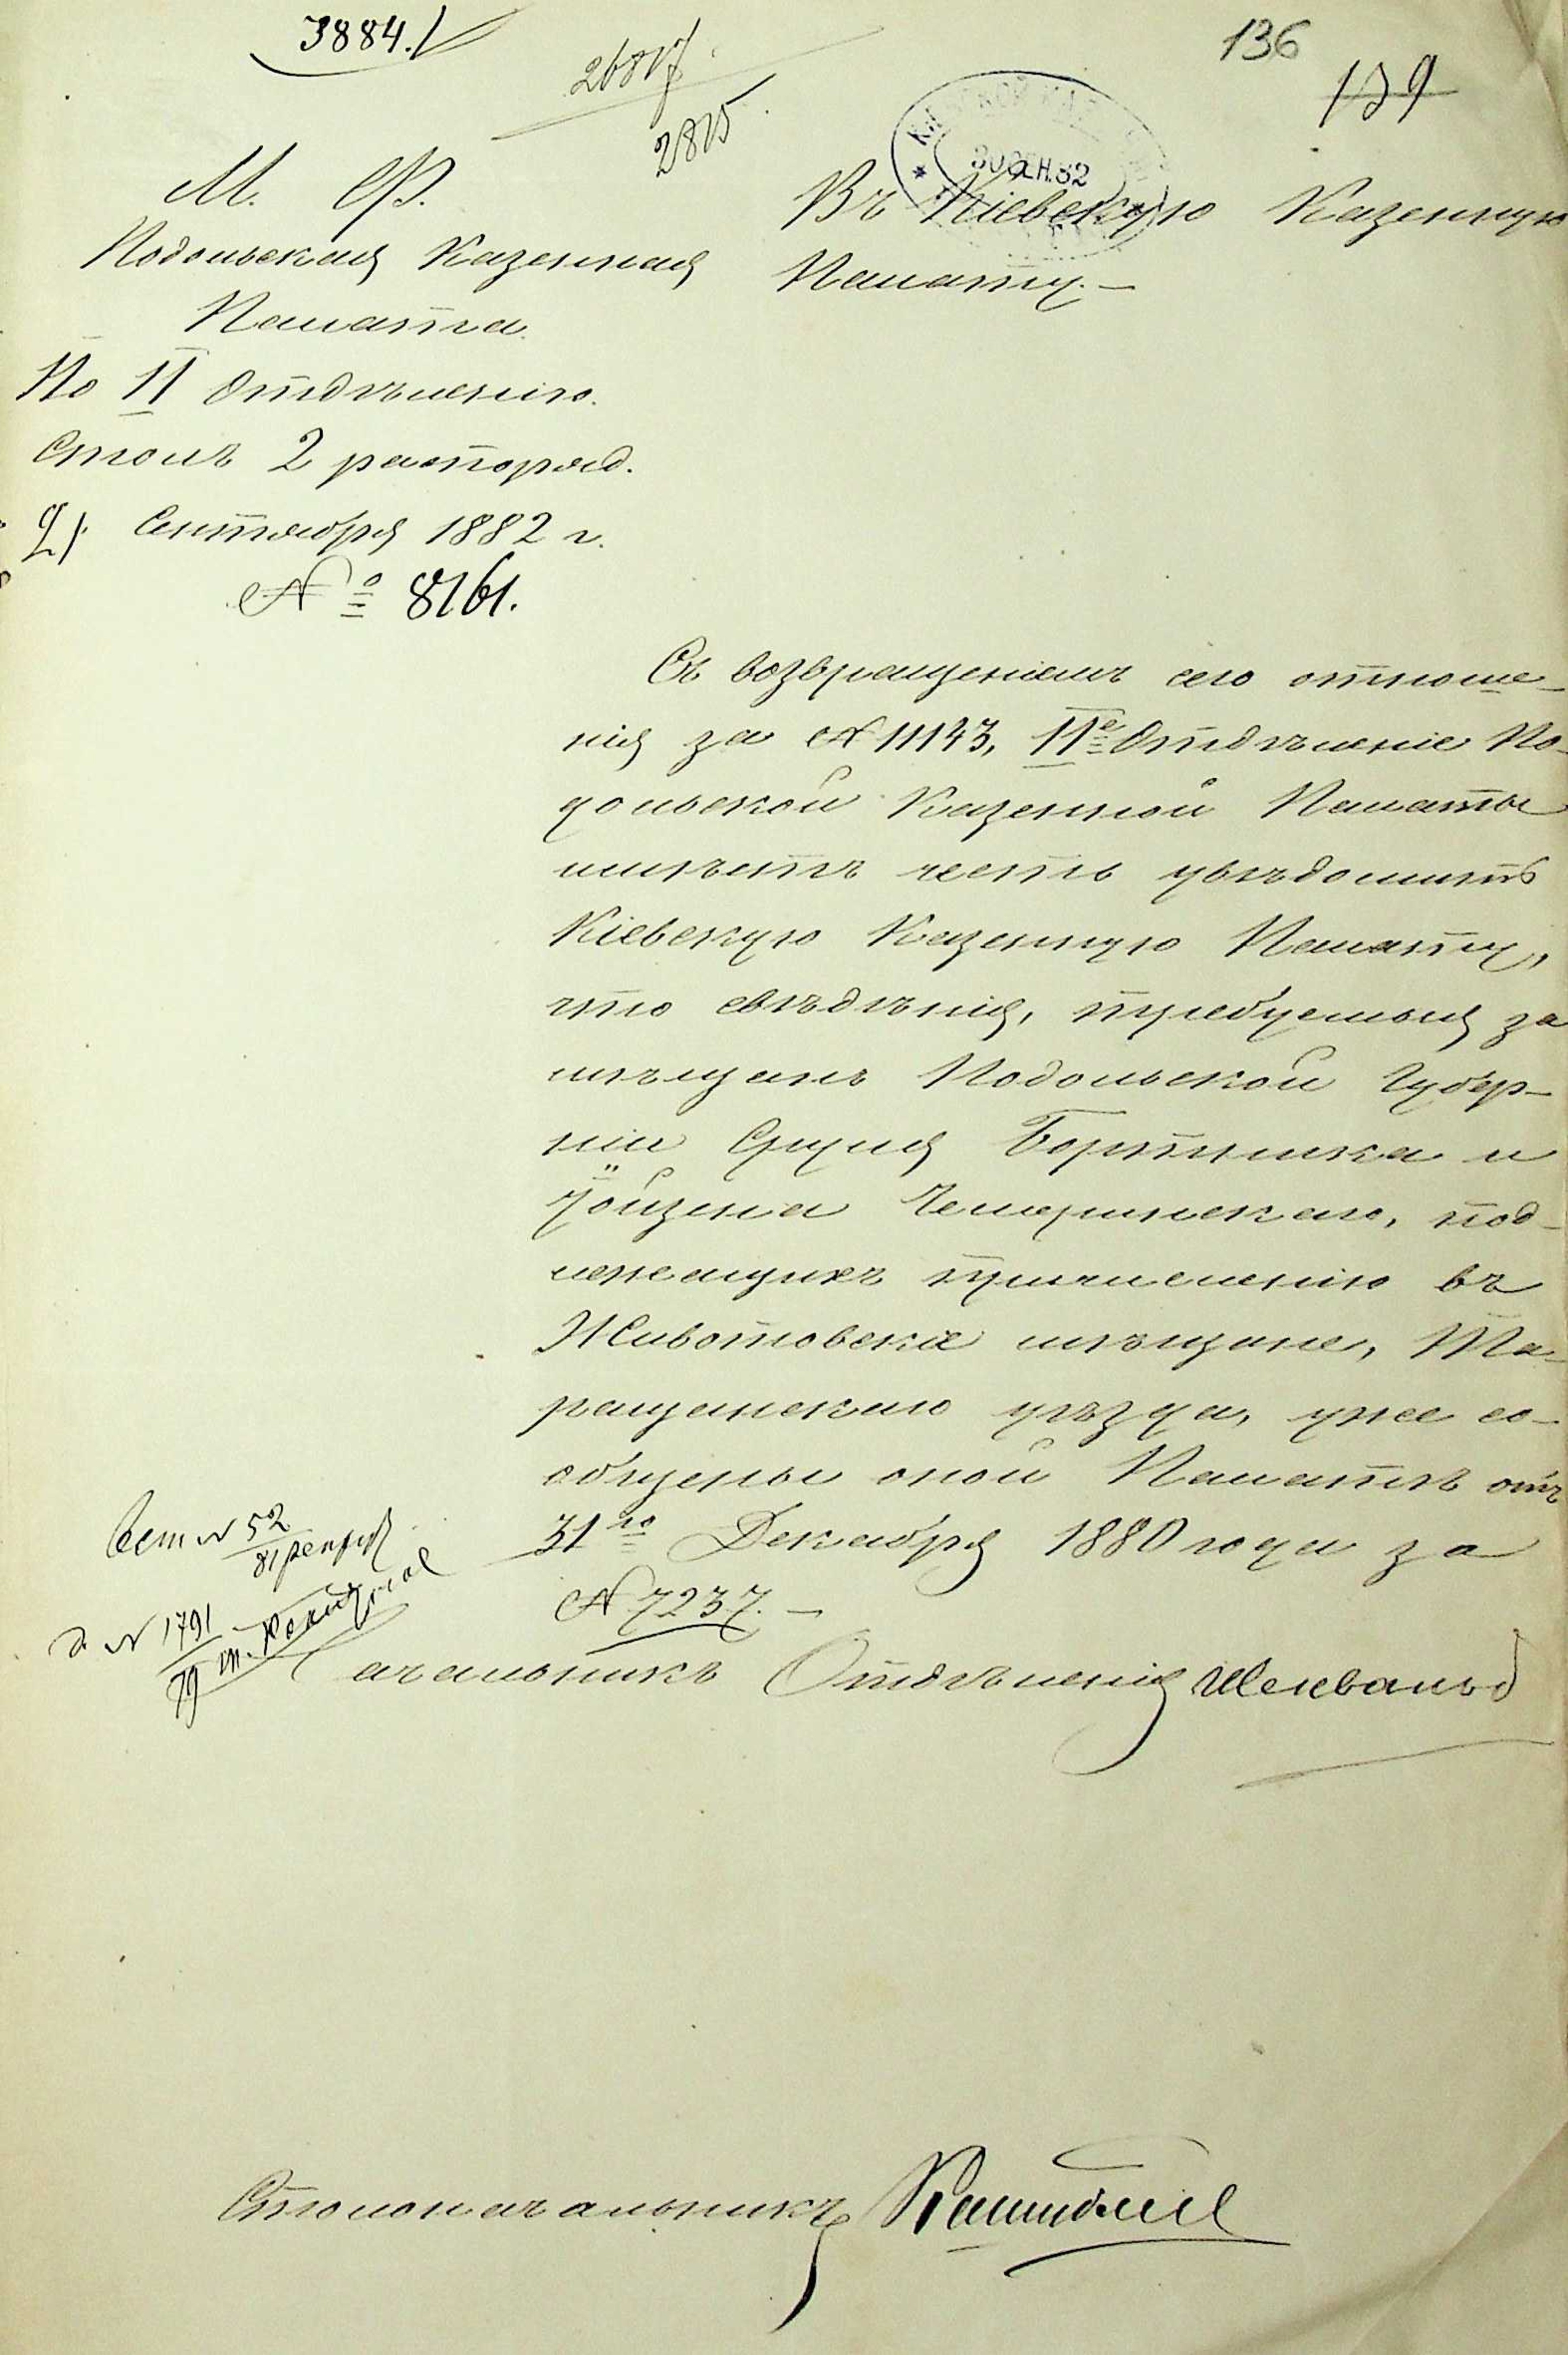 3884.
136
139
2815
30 СЕН. 82
М. Ф.
Подольская Казенная
Палата.
По II Отдѣленію.
Столъ 2 распоряд.
21 Сентября 1882 г.
№ 8761.
Въ Кіевскую Казенную
Палату.—
Съ возвращеніемъ сего отноше-
нія за № 11143, II е Отдѣленіе По-
дольской Казенной Палаты
имѣетъ честь увѣдомить
Кіевскую Казенную Палату,
что свѣдѣнія, требуемыя за
мѣщанъ Подольской Губер-
ніи Сруля Бортника и
Іойзена Чемеринскаго, под-
лежащихъ причисленію въ
Животовскіе мѣщане, Та-
ращанскаго уѣзда, уже со-
общены оной Палатѣ отъ
31 го Декабря 1880 года за
№ 7237.—
Начальникъ Отдѣленія
№ 52
№ 1791
79
Столоначальникъ